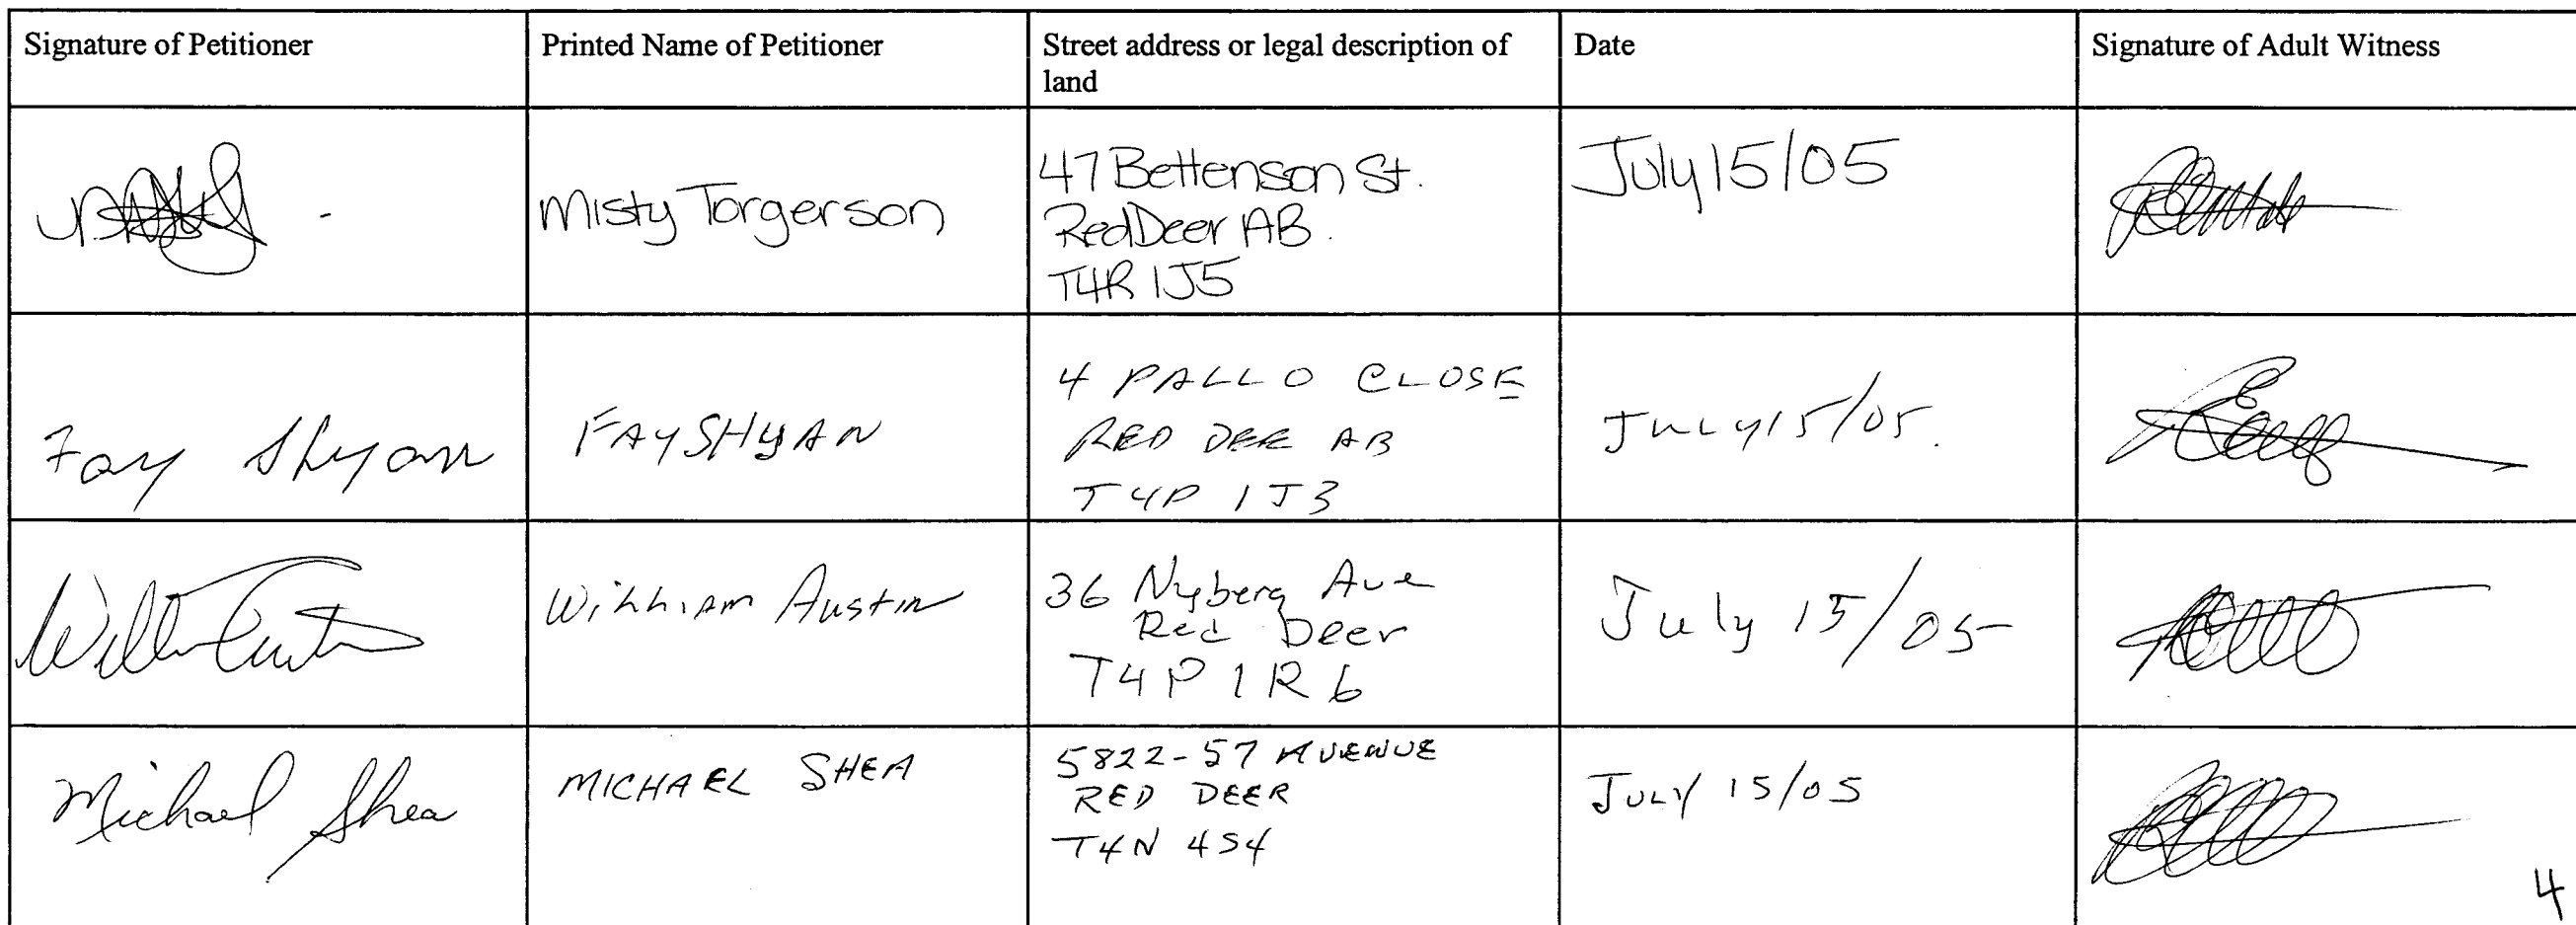 Signature of Petitioner
Printed Name of Petitioner
Street address or legal description of
land
Date
Signature of Adult Witness
Misty Torgerson
47 Bettenson St.
Red Deer AB.
T4R 1J5
July 15/05
Fay Shyan
FAY SHYAN
4 PALLO CLOSE
RED DEER AB
T4P 1J3
July 15/05.
William Austin
36 Nyberg Ave
Red Deer
T4P 1R6
July 15/05
Michael Shea
MICHAEL SHEA
5822-57 AVENUE
RED DEER
T4N 4S4
JULY 15/05
4